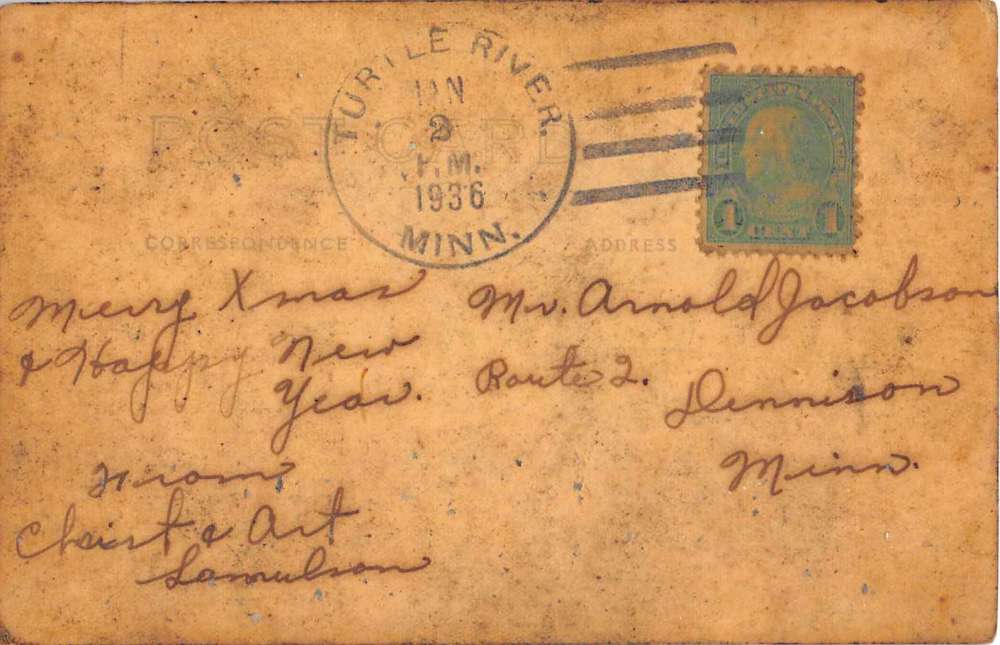 TURTLE RIVER.
JAN
2
P.M.
1936
MINN.
POST CARD
1 CENT 1
CORRESPONDENCE
ADDRESS
Merry Xmas
& Happy New
Year.
From
Christ & Art
Samulson
Mr. Arnold Jacobson
Route 2.
Dennison
Minn.